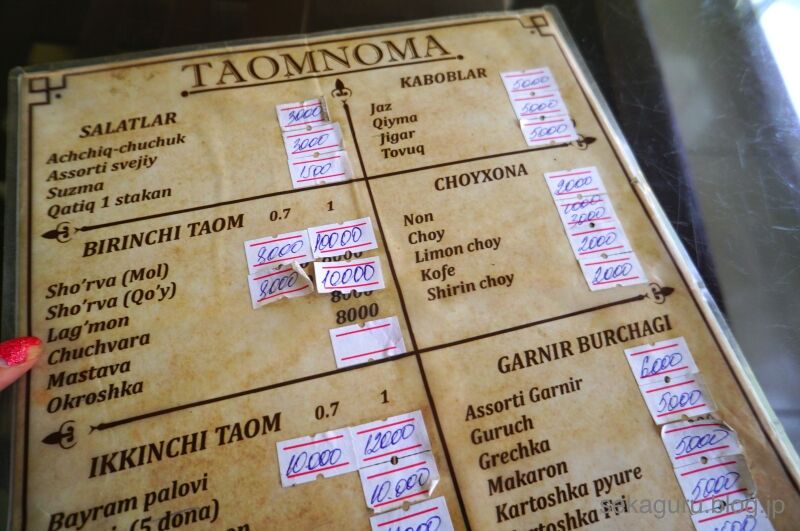 TAOMNOMA
SALATLAR
Achchiq-chuchuk
Assorti svejiy
Suzma
Qatiq 1 stakan
3000
3000
1500
KABOBLAR
Jaz
Qiyma
Jigar
Tovuq
5000
5000
5000
BIRINCHI TAOM 0.7 1
Sho'rva (Mol)
Sho'rva (Qo'y)
Lag'mon
Chuchvara
Mastava
Okroshka
8000 10000
8000 10000
8000
8000
CHOYXONA
Non
Choy
Limon choy
Kofe
Shirin choy
2000
3000
2000
2000
IKKINCHI TAOM 0.7 1
Bayram palovi
(5 dona)
10.000 12000
10.000
GARNIR BURCHAGI
Assorti Garnir
Guruch
Grechka
Makaron
Kartoshka pyure
Kartoshka Fri
6000
5000
5000
5000
sakaguru.blog.jp